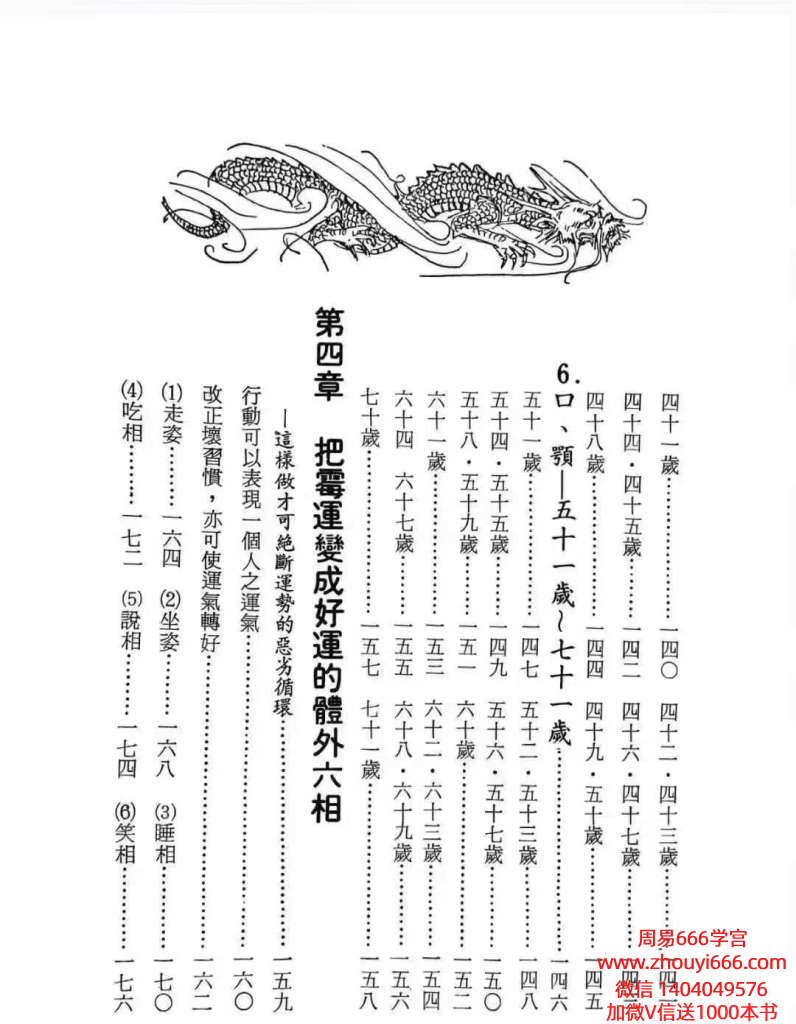 四十一歲……一四〇 四十二·四十三歲……一四一
四十四·四十五歲……一四二 四十六·四十七歲……一四三
四十八歲……一四四 四十九·五十歲……一四五
6.口、顎—五十一歲~七十一歲……一四六
五十一歲……一四七 五十二·五十三歲……一四八
五十四·五十五歲……一四九 五十六·五十七歲……一五〇
五十八·五十九歲……一五一 六十歲……一五二
六十一歲……一五三 六十二·六十三歲……一五四
六十四 六十七歲……一五五 六十八·六十九歲……一五六
七十歲……一五七 七十一歲……一五八
第四章 把霉運變成好運的體外六相
—這樣做才可絕斷運勢的惡劣循環……一五九
行動可以表現一個人之運氣……一六〇
改正壞習慣，亦可使運氣轉好……一六二
⑴走姿……一六四 ⑵坐姿……一六八 ⑶睡相……一七〇
⑷吃相……一七二 ⑸說相……一七四 ⑹笑相……一七六
周易666学宫
www.zhouyi666.com
微信 1404049576
加微V信送1000本书